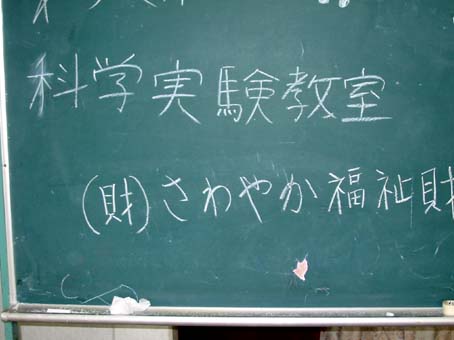 科学実験教室
(財)さわやか福祉財